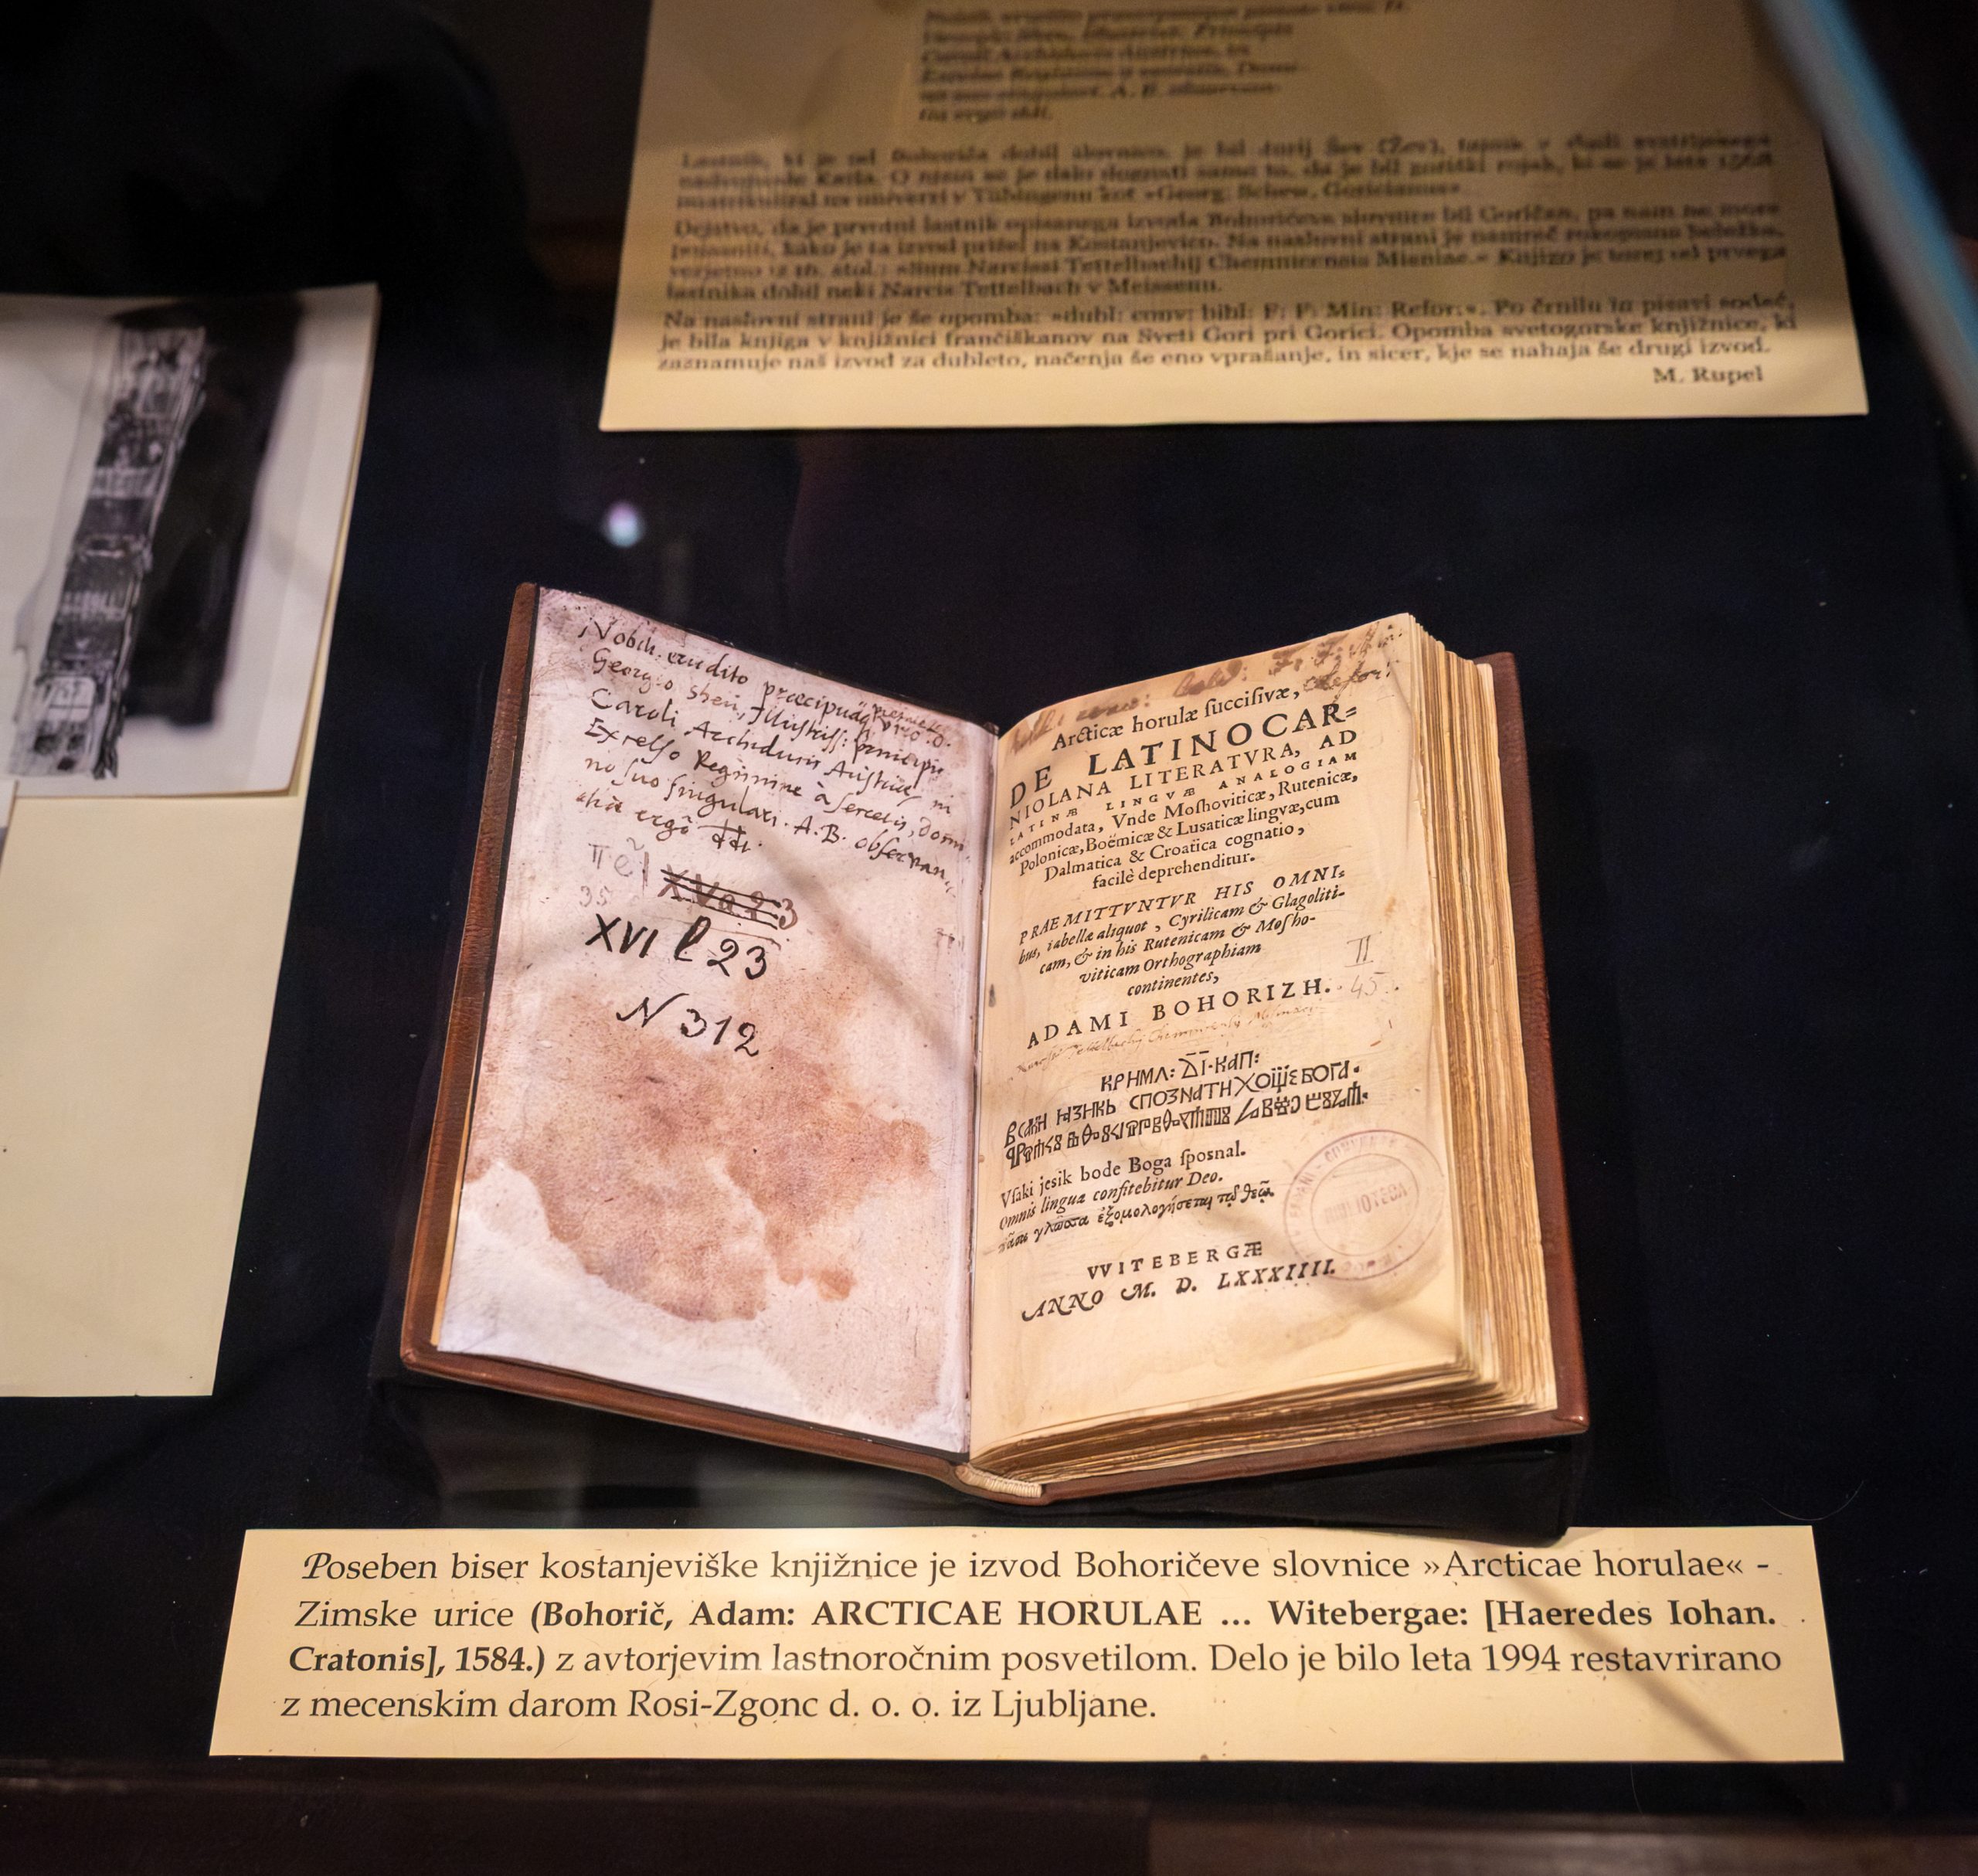 Lastnik, ki je od Bohoriča dobil slovnico, je bil Jurij Šev (Žev), tajnik v službi
nadvojvode Karla. O njem se je dalo dognati samo to, da je bil goriški rojak, ki se je leta 1568
imatrikuliral na univerzi v Tübingenu kot »Georg. Schew, Goricianus«.
Dejstvo, da je prvotni lastnik opisanega izvoda Bohoričeve slovnice bil Goričan, pa nam ne more
pojasniti, kako je ta izvod prišel na Kostanjevico. Na naslovni strani je namreč rokopisna beležka,
verjetno iz 16. stol.: »Sum Narcissi Tettelbachij Chemnicensis Misniae.« Knjigo je torej od prvega
lastnika dobil neki Narcis Tettelbach v Meissenu.
Na naslovni strani je še opomba: »dubl: conv: bibl: F: F: Min: Refor:«. Po črnilu in pisavi sodeč,
je bila knjiga v knjižnici frančiškanov na Sveti Gori pri Gorici. Opomba svetogorske knjižnice, ki
zaznamuje naš izvod za dubleto, načenja še eno vprašanje, in sicer, kje se nahaja še drugi izvod.
M. Rupel
Nobili erudito præcipuaq
Georgio Sheu, Illustriss: principis
Caroli Archiducis Austriæ, in
Excelso Regimine à secretis, domi
no suo singulari. A. B. observan
tiæ ergò dd.
XVI l 23
N 312
Arcticæ horulæ ſucciſivæ,
DE LATINOCAR=
NIOLANA LITERATVRA, AD
LATINÆ LINGVÆ ANALOGIAM
accommodata, Vnde Moshoviticæ, Rutenicæ,
Polonicæ, Boëmicæ & Lusaticæ lingvæ, cum
Dalmatica & Croatica cognatio,
facilè deprehenditur.
PRAEMITTVNTVR HIS OMNI=
bus, tabellæ aliquot, Cyrilicam & Glagoliti-
cam, & in his Rutenicam & Moſho-
viticam Orthographiam
continentes,
ADAMI BOHORIZH.
II
45
КРНМЛ: ДІ·КАП:
ВСАКН ІЄЗНКЬ СПОЗНАТН ХОЩЕ БОГА.
Vſaki jesik bode Boga ſposnal.
Omnis lingua confitebitur Deo.
πᾶσα γλῶσσα ἐξομολογήσεται τῷ θεῷ.
VVITEBERGÆ
ANNO M. D. LXXXIIII.
BIBLIOTECA
Poseben biser kostanjeviške knjižnice je izvod Bohoričeve slovnice »Arcticae horulae« -
Zimske urice (Bohorič, Adam: ARCTICAE HORULAE ... Witebergae: [Haeredes Iohan.
Cratonis], 1584.) z avtorjevim lastnoročnim posvetilom. Delo je bilo leta 1994 restavrirano
z mecenskim darom Rosi-Zgonc d. o. o. iz Ljubljane.